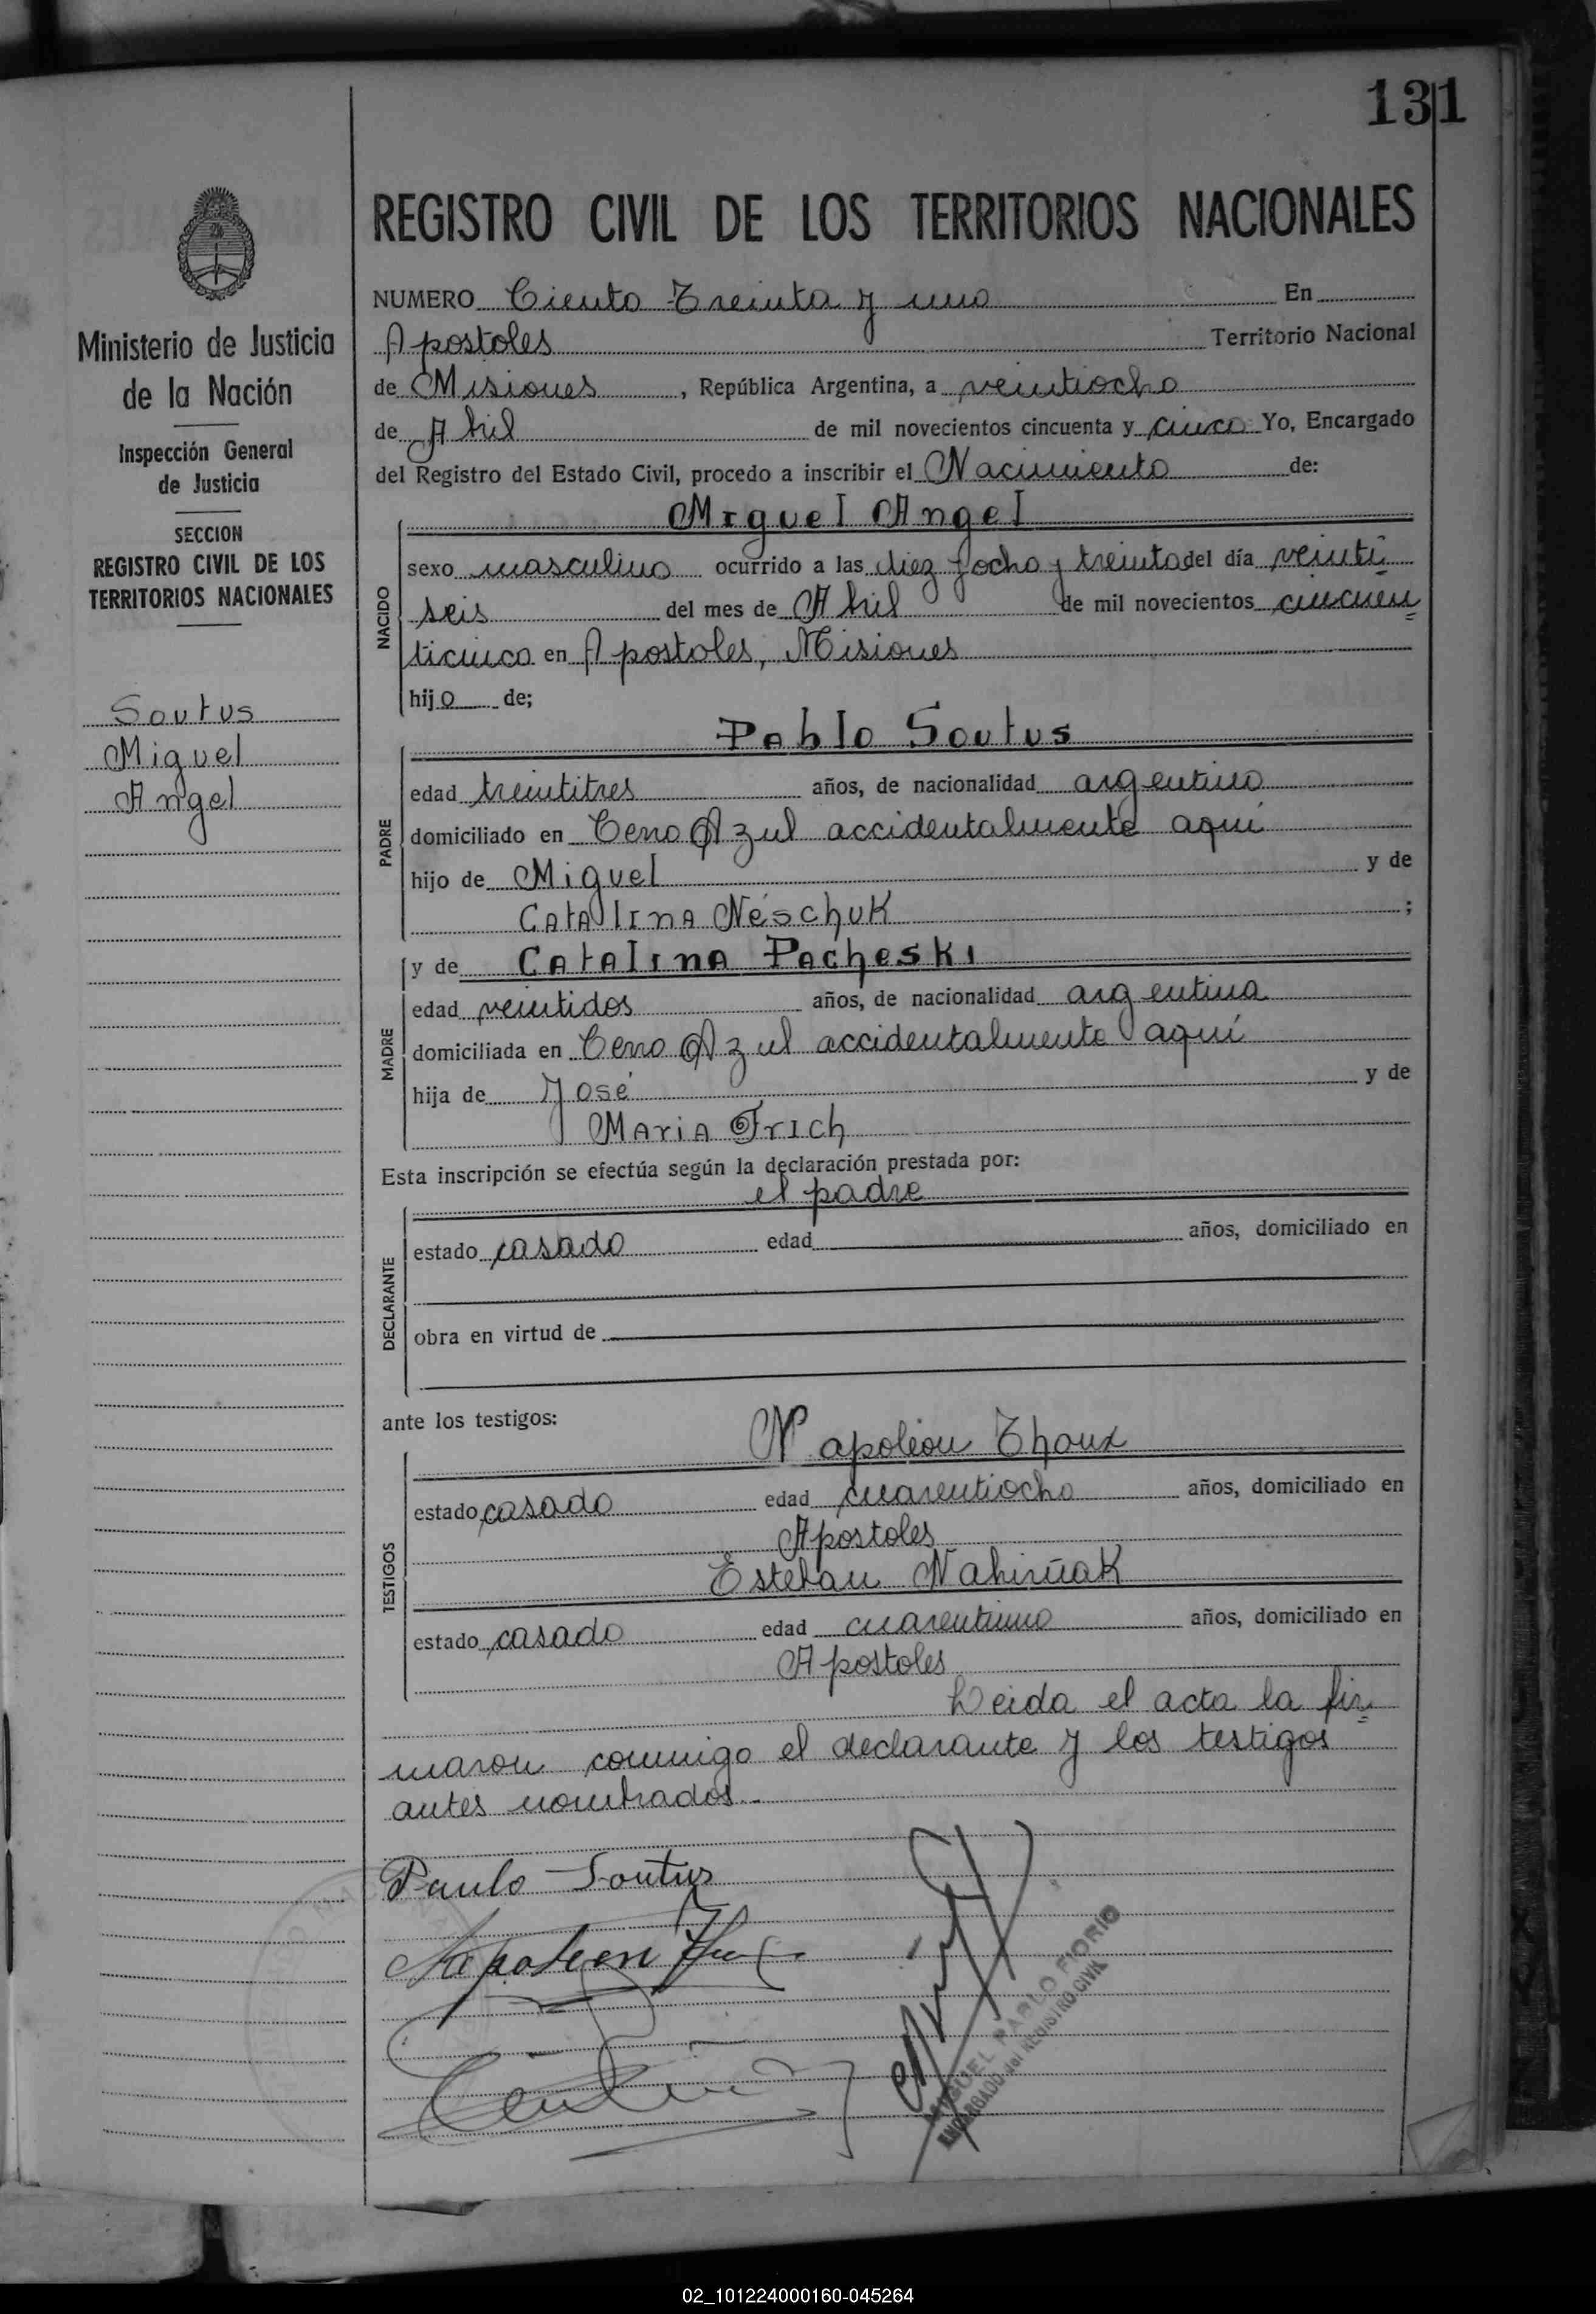 131
REGISTRO CIVIL DE LOS TERRITORIOS NACIONALES
Ministerio de Justicia
de la Nación
Inspección General
de Justicia
SECCION
REGISTRO CIVIL DE LOS
TERRITORIOS NACIONALES
Soutus
Miguel
Angel
NUMERO Ciento Treinta y uno En
Apostoles Territorio Nacional
de Misiones, República Argentina, a veintiocho
de Abril de mil novecientos cincuenta y cinco Yo, Encargado
del Registro del Estado Civil, procedo a inscribir el Nacimiento de:
NACIDO
Miguel Angel
sexo masculino ocurrido a las diez y ocho y treinta del día veinti
seis del mes de Abril de mil novecientos cincuen=
ticinco en Apostoles, Misiones
hijo de;
PADRE
Pablo Soutus
edad treintitres años, de nacionalidad argentino
domiciliado en Cerro Azul accidentalmente aquí
hijo de Miguel y de
Catalina Neschuk ;
MADRE
y de Catalina Pacheski
edad veintidos años, de nacionalidad argentina
domiciliada en Cerro Azul accidentalmente aquí
hija de José y de
Maria Frich
Esta inscripción se efectúa según la declaración prestada por:
DECLARANTE
el padre
estado casado edad años, domiciliado en
obra en virtud de
ante los testigos:
TESTIGOS
Napoleon Thoux
estado casado edad cuarentiocho años, domiciliado en
Apostoles
Esteban Nahirñak
estado casado edad cuarentiuno años, domiciliado en
Apostoles
Leida el acta la fir=
maron conmigo el declarante y los testigos
antes nombrados.-
Paulo Soutus
Napoleon
MIGUEL MARLO FIORIO
ENCARGADO del REGISTRO CIVIL
02_101224000160-045264